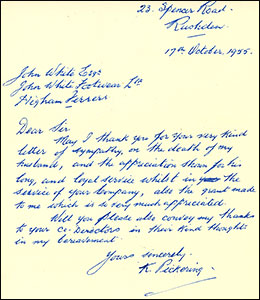 23. Spencer Road.
Rushden.
17th October, 1955.
John White Esqr
John White Footwear Ltd
Higham Ferrers
Dear Sir
May I thank you for your very kind
letter of sympathy, on the death of my
husband, and the appreciation shown for his
long, and loyal service whilst in
the service of your Company, also the grant made
to me which is so very much appreciated.
Will you please also convey my thanks
to your co-Directors in their kind thoughts
in my bereavement.
Yours sincerely.
K. Pickering.